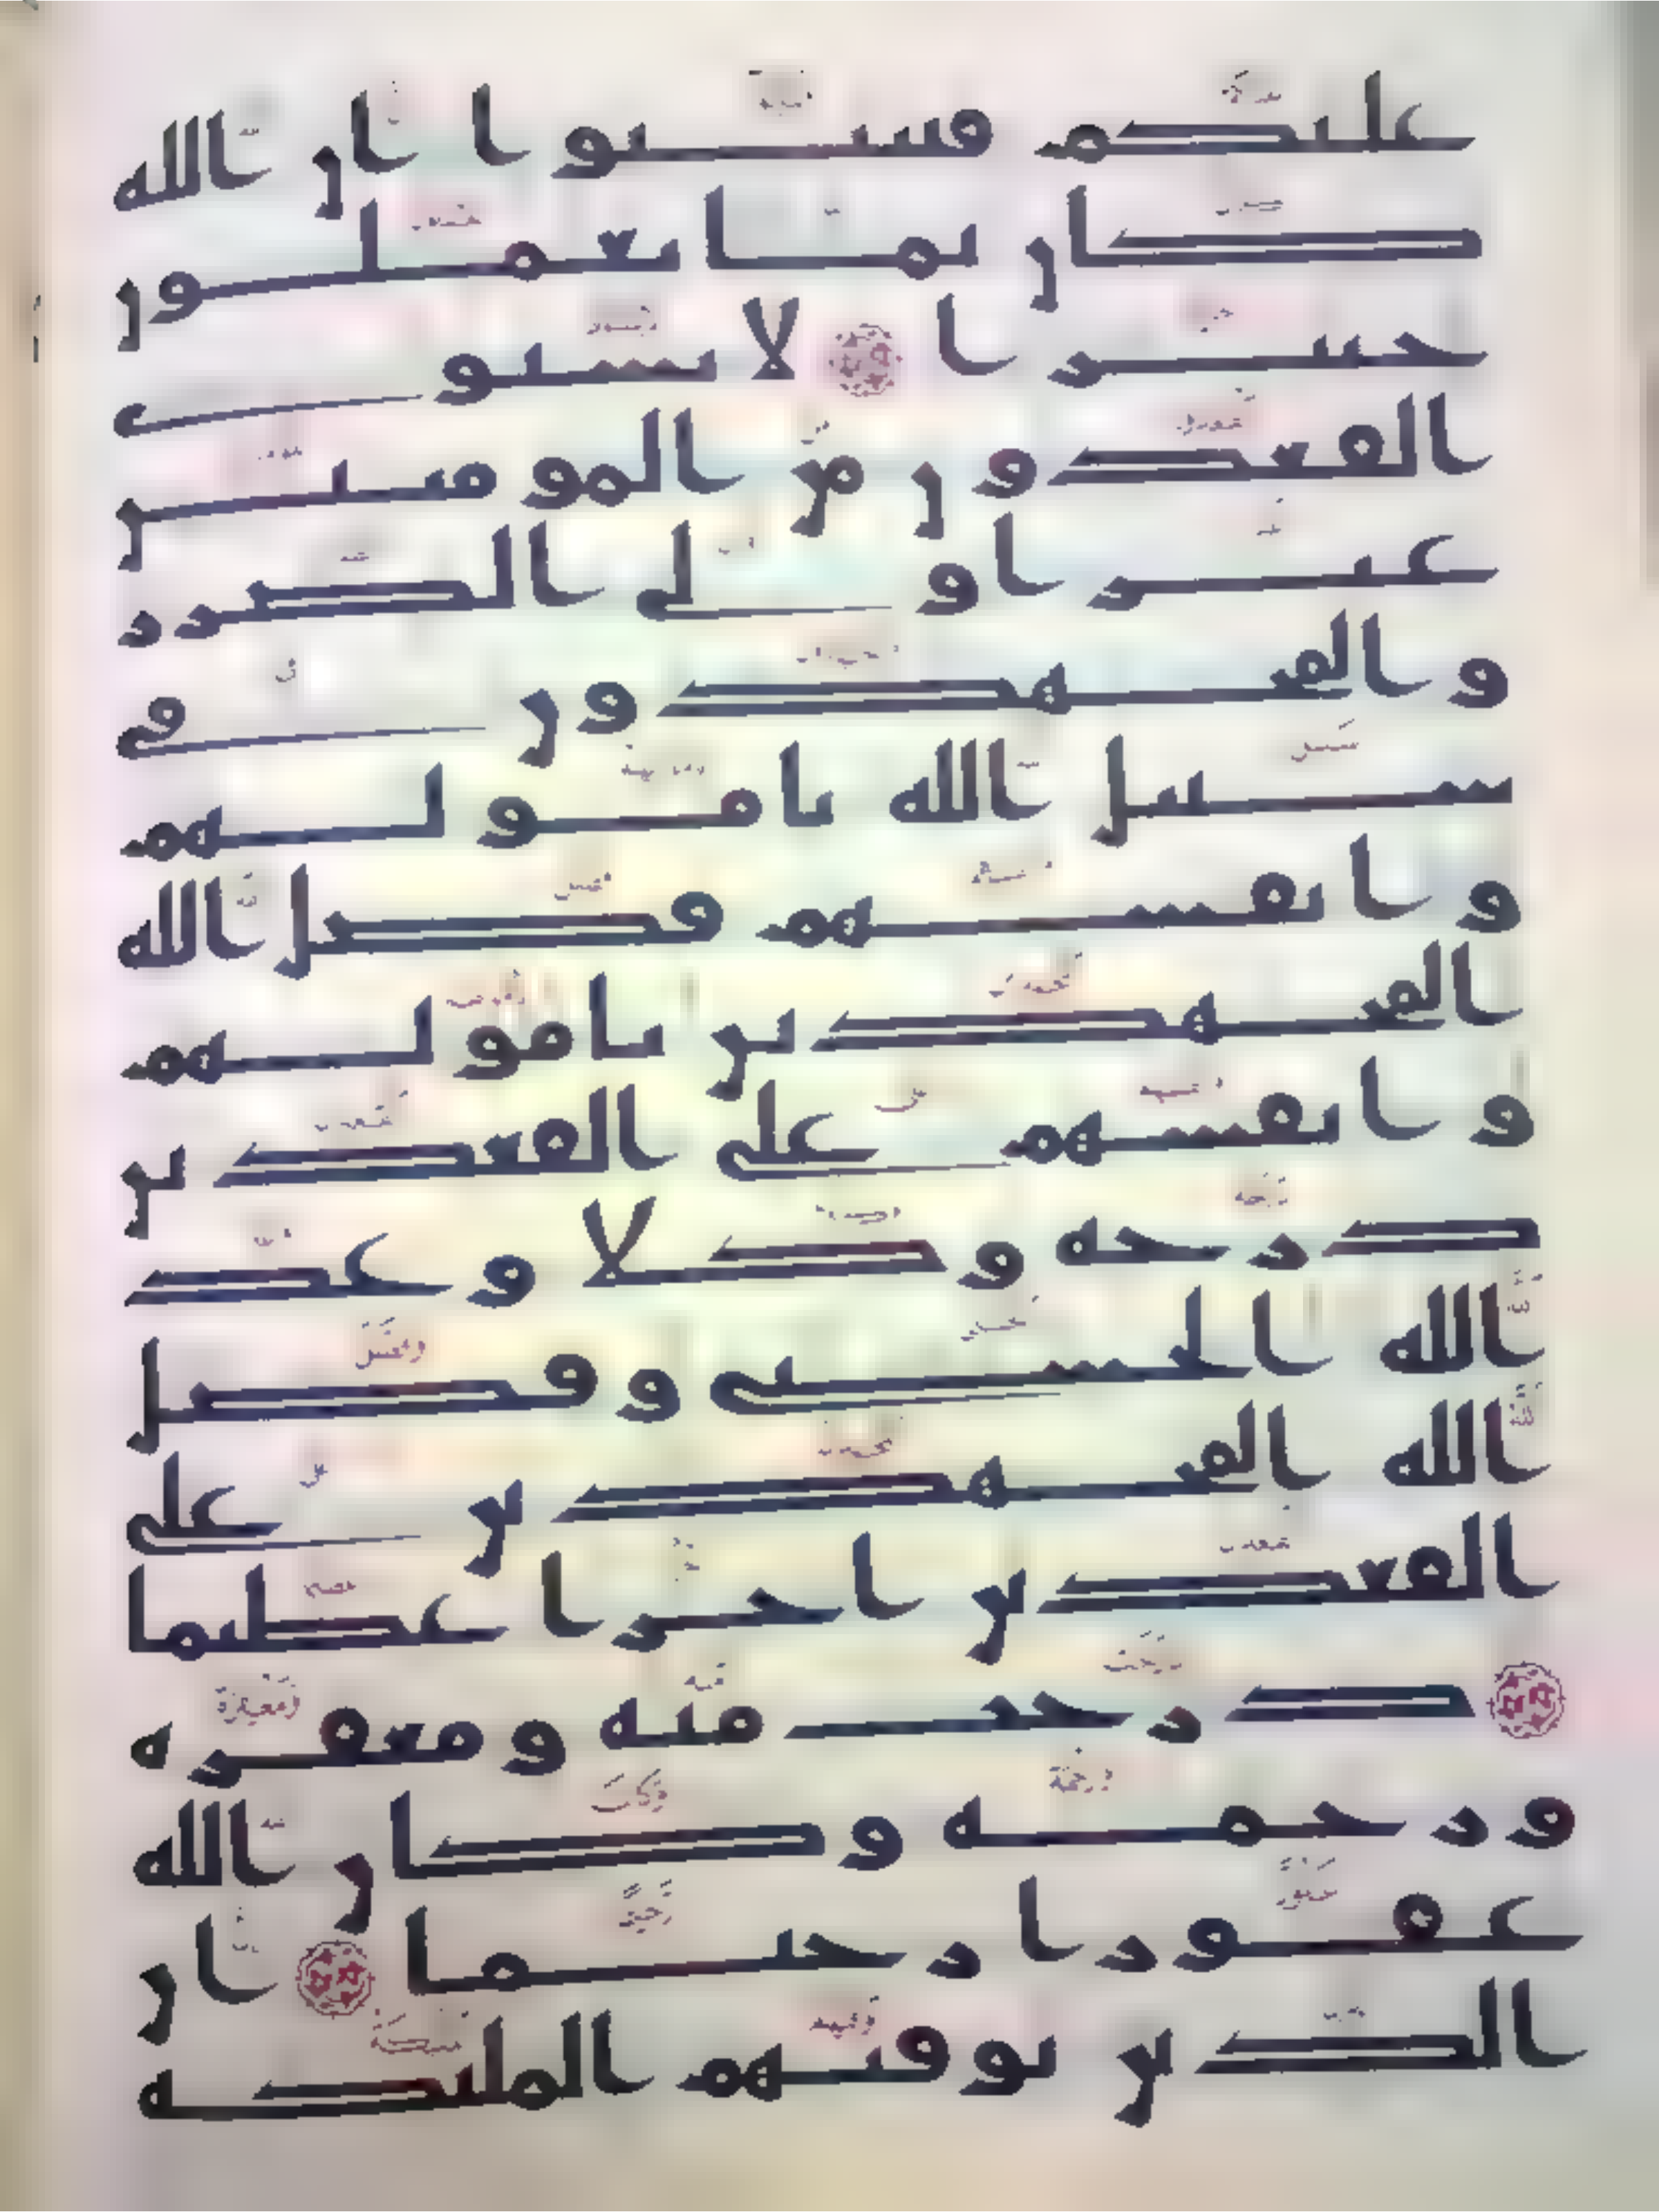 عليكم فتبينوا ان الله
كان بما تعملون
خبيرا ۝ لا يستوى
القعدون من المومنين
غير اولى الضرر
والمجهدون فى
سبيل الله بامولهم
وانفسهم فضل الله
المجهدين بامولهم
وانفسهم على القعدين
درجة وكلا وعد
الله الحسنى وفضل
الله المجهدين على
القعدين اجرا عظيما
۝ درجت منه ومغفرة
ورحمة وكان الله
غفورا رحيما ۝ ان
الذين توفيهم المليكة